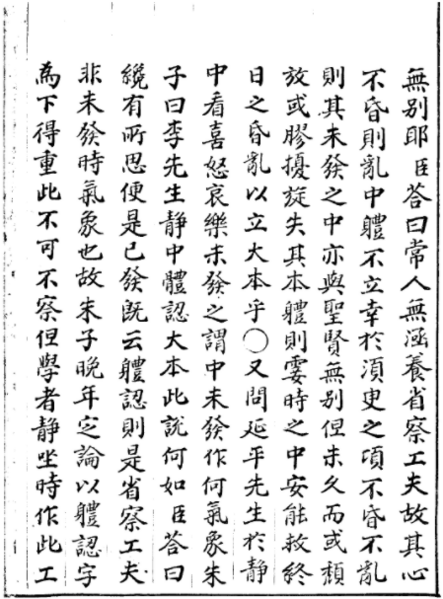 無別耶臣答曰常人無涵養省察工夫故其心
不昏則亂中體不立幸於湏臾之頃不昏不亂
則其未發之中亦與聖賢無別但未久而或頹
放或膠擾旋失其本體則霎時之中安能救終
日之昏亂以立大本乎○又問延平先生於静
中看喜怒哀樂未發之謂中未發作何氣象朱
子曰李先生静中體認大本此説何如臣答曰
纔有所思便是已發旣云軆認則是省察工夫
非未發時氣象也故朱子晚年定論以軆認字
為下得重此不可不察但學者静坐時作此工